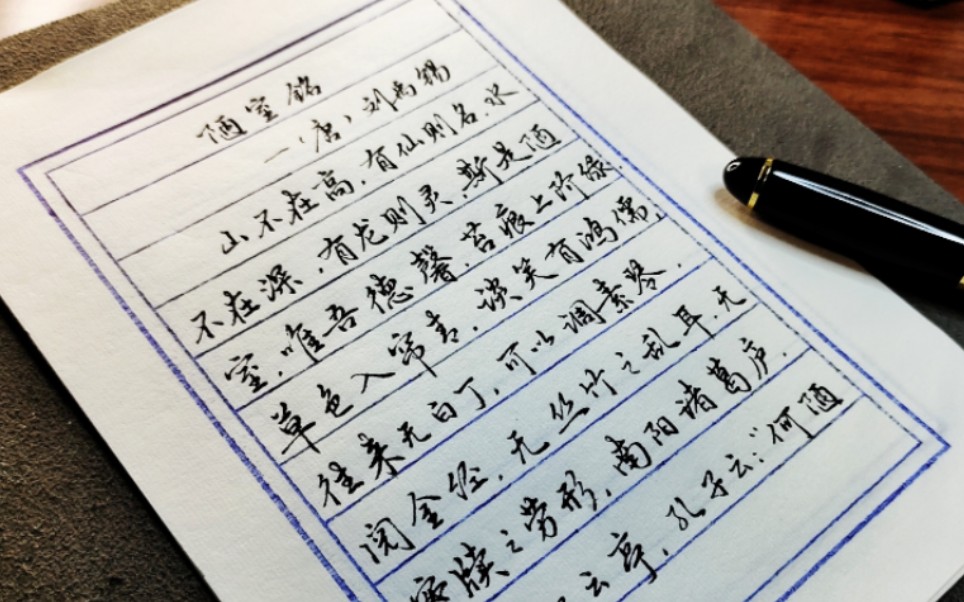 陋室铭
—(唐)刘禹锡
山不在高,有仙则名.水
不在深,有龙则灵.斯是陋
室,唯吾德馨.苔痕上阶绿,
草色入帘青.谈笑有鸿儒,
往来无白丁,可以调素琴.
阅金经.无丝竹之乱耳.无
案牍之劳形.南阳诸葛庐.
云亭.孔子云:“何陋